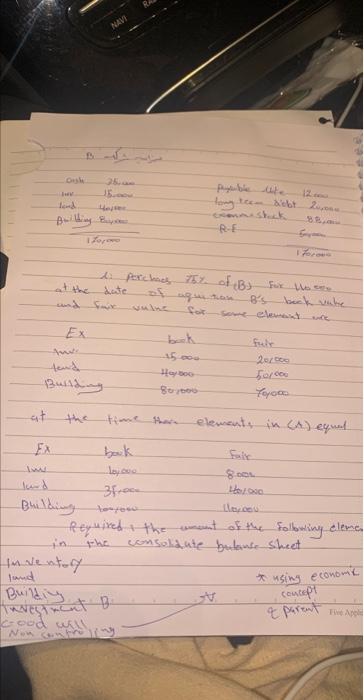 NAVI
B
Cash 35.000 Payable
inv 15.000 long term debt 20,000
land 40,000 common stock 88,000
Building 80,000 R.E
170,000 170,000
75% of (B) for 110 000
at the date of B's book value
and fair value for some element are
Ex book Fair
Inv. 15 000 20,000
land 40,000 50,000
Building 80,000 70,000
at the time elements in (A) equal
Ex book Fair
Inv 10,000 8000
land 35,000 40,000
Building 100,000 110,000
Required: the amount of the following
in the consolidate balance sheet
Inventory
land
Building
Investment B
Good will
Non controlling
* using economic
concept
& parent
Five